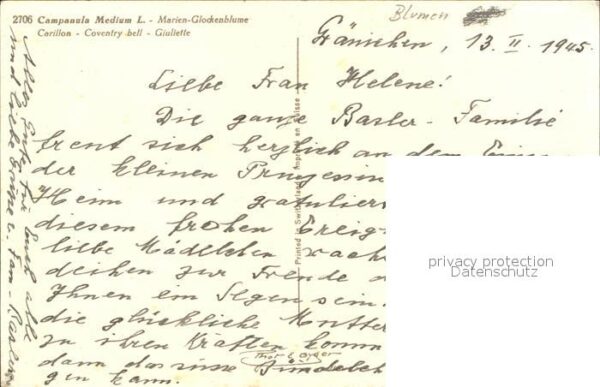 2706 Campanula Medium L. - Marien-Glockenblume
Carillon - Coventry bell - Giuliette
Blumen
Gränichen, 13. II. 1945.
Liebe Frau Helene!
Die ganze Basler-Familie
freut sich herzlich an dem
der kleinen Prinzessin
Heim und gratulier
diesem frohen Ereig
liebe Mädelchen wach
deihen zur Freude
Ihnen ein Segen sein.
die glückliche Mutter
zu ihren Kräften komm
dann das süsse Bündelch
gen kann.
Alles Gute für Euch alle
und liebe Grüsse v. Fam. Basler
Printed in Switzerland - Imprimé en Suisse
Thor E Gyger
privacy protection
Datenschutz